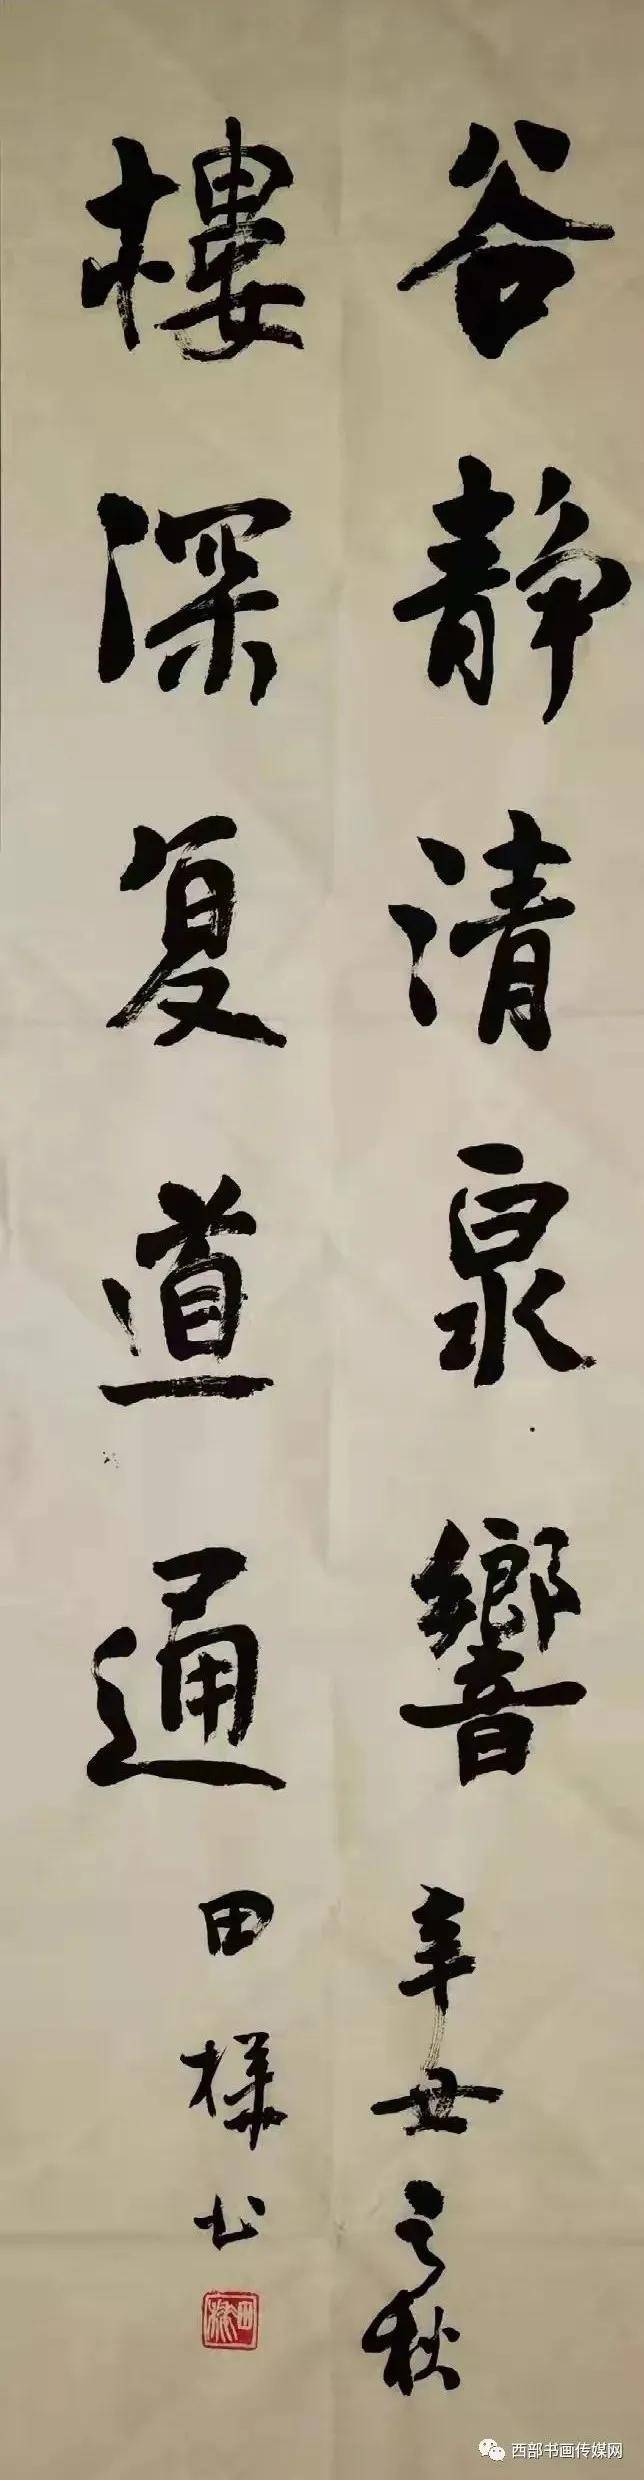 谷静清泉響
辛丑之秋
樓深复道通
田様书
西部书画传媒网